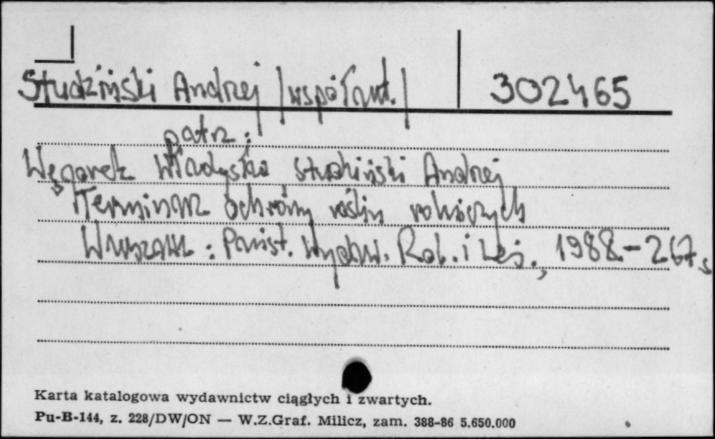 Studziński Andrzej /współaut./ 302465
patrz:
Węgorek Władysław Studziński Andrzej
Terminarz ochrony roślin rolniczych
Warszawa: Państ. Wydaw. Rol. i Leś., 1988 - 267 s
Karta katalogowa wydawnictw ciągłych i zwartych.
Pu-B-144, z. 228/DW/ON — W.Z.Graf. Milicz, zam. 388-86 5.650.000